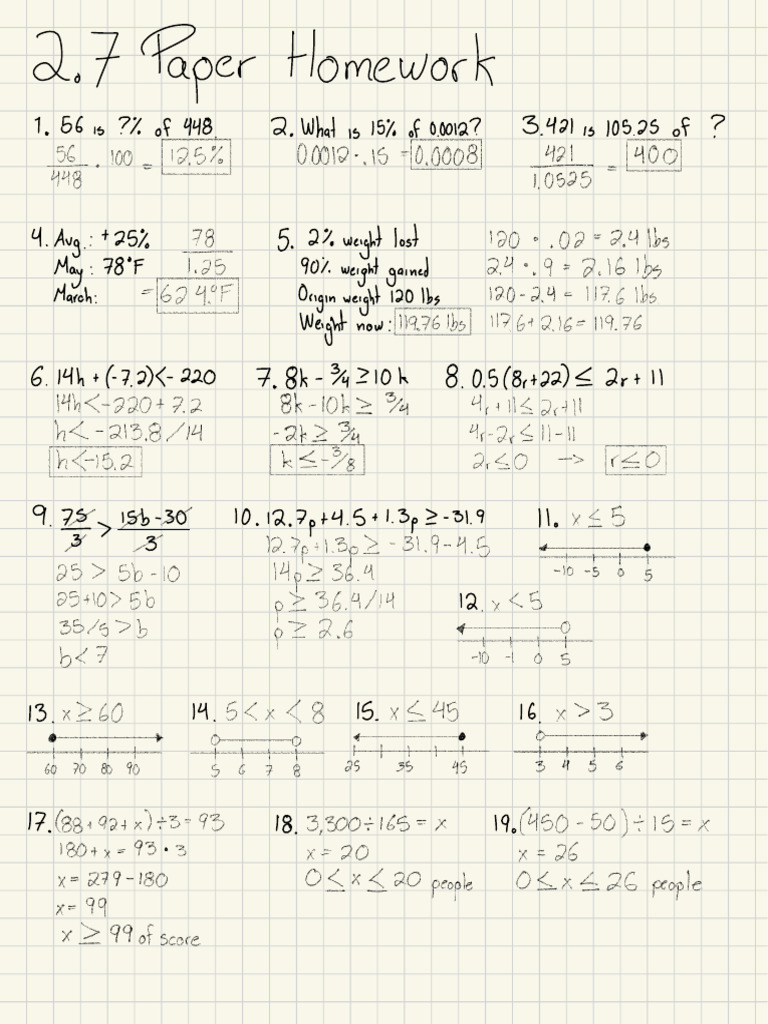 2.7 Paper Homework
1. 56 is ?% of 448
56/448 · 100 = 12.5%
2. What is 15% of 0.0012?
0.0012 · .15 = 0.0008
3. 421 is 105.25 of ?
421/1.0525 = 400
4. Avg.: +25%
May: 78°F
March:
78/1.25
= 62.4°F
5. 2% weight lost
90% weight gained
Origin weight 120 lbs
Weight now: 119.76 lbs
120 · .02 = 2.4 lbs
2.4 · .9 = 2.16 lbs
120 - 2.4 = 117.6 lbs
117.6 + 2.16 = 119.76
6. 14h + (-7.2) < -220
14h < -220 + 7.2
h < -213.8/14
h < -15.2
7. 8k - 3/4 ≥ 10k
8k - 10k ≥ 3/4
-2k ≥ 3/4
k ≤ -3/8
8. 0.5(8r+22) ≤ 2r + 11
4r + 11 ≤ 2r + 11
4r - 2r ≤ 11 - 11
2r ≤ 0 → r ≤ 0
9. 75/3 > 15b - 30/3
25 > 5b - 10
25 + 10 > 5b
35/5 > b
b < 7
10. 12.7p + 4.5 + 1.3p ≥ -31.9
12.7p + 1.3p ≥ -31.9 - 4.5
14p ≥ 36.4
p ≥ 36.4/14
p ≥ 2.6
11. x ≤ 5
-10 -5 0 5
12. x < 5
-10 -1 0 5
13. x ≥ 60
60 70 80 90
14. 5 < x < 8
5 6 7 8
15. x ≤ 45
25 35 45
16. x > 3
3 4 5 6
17. (88 + 92 + x) ÷ 3 = 93
180 + x = 93 · 3
x = 279 - 180
x = 99
x ≥ 99 of score
18. 3,300 ÷ 165 = x
x = 20
0 ≤ x ≤ 20 people
19. (450 - 50) ÷ 15 = x
x = 26
0 ≤ x ≤ 26 people